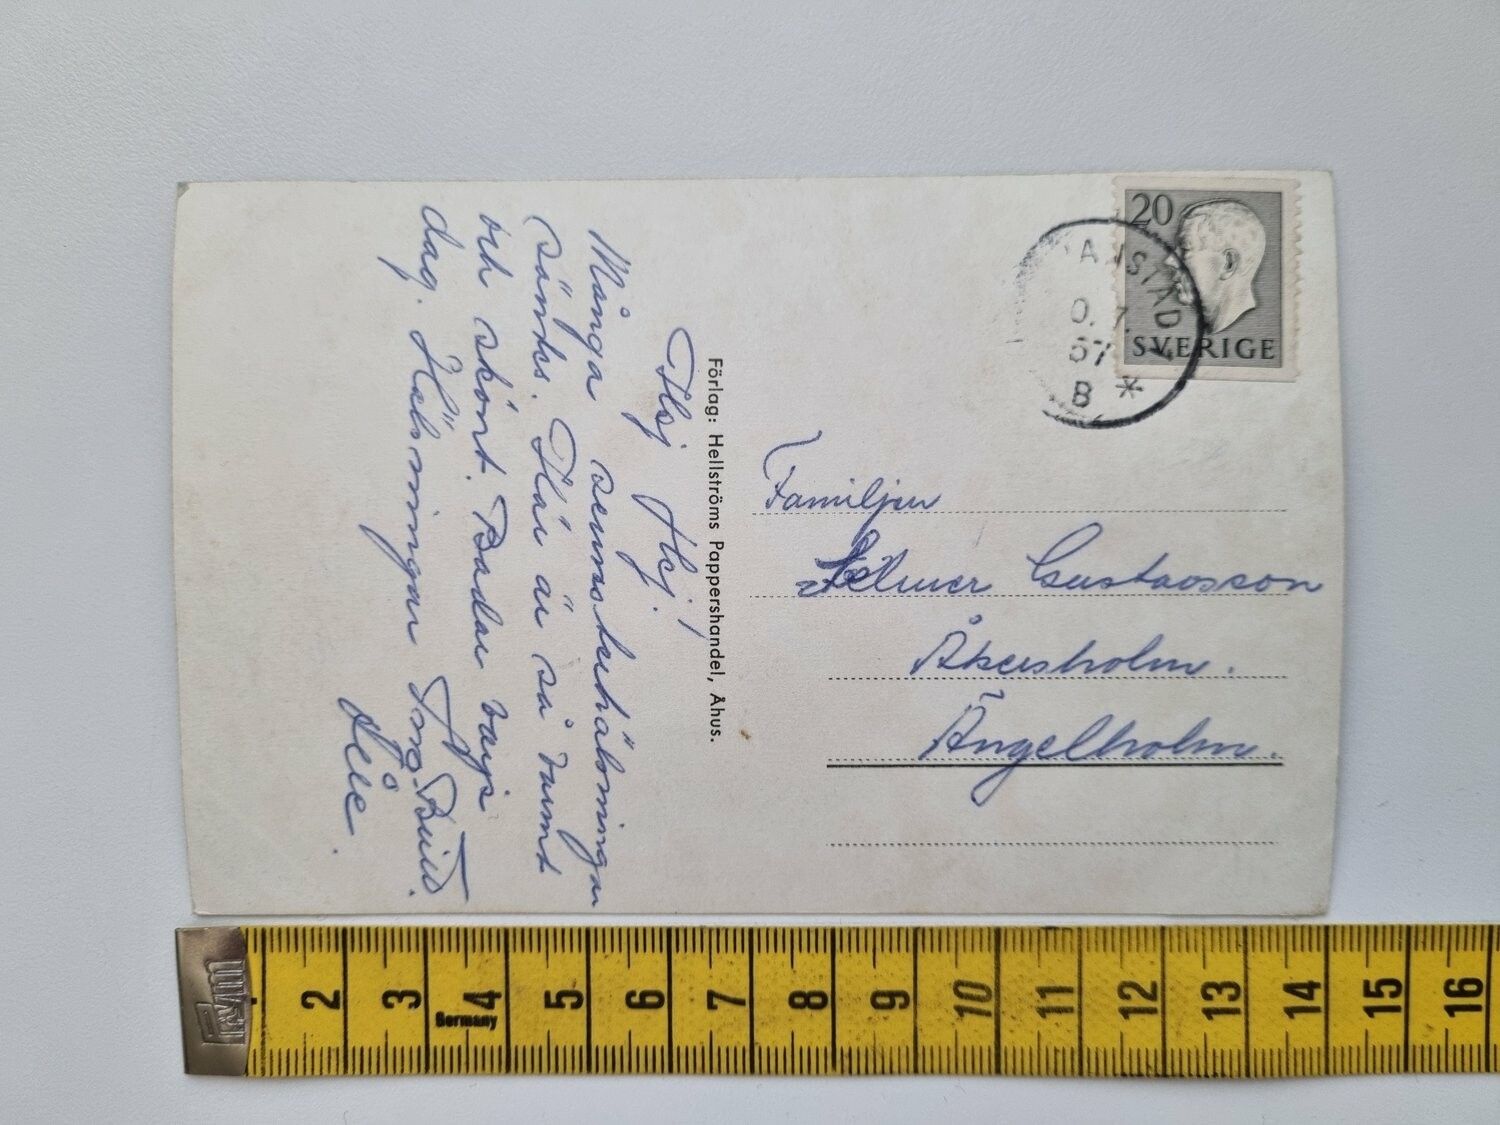 Hej Hej!
Många semesterhälsningar
sändes. Här är så varmt
och skönt. Badar varje
dag. Hälsningar Ing-Britt.
Förlag: Hellströms Pappershandel, Åhus.
20
SVERIGE
ANSTAD
0.7.
57
B *
Familjen
Gustavsson
Åkersholm.
Ängelholm.
2 3 4 5 6 7 8 9 10 11 12 13 14 15 16
Germany